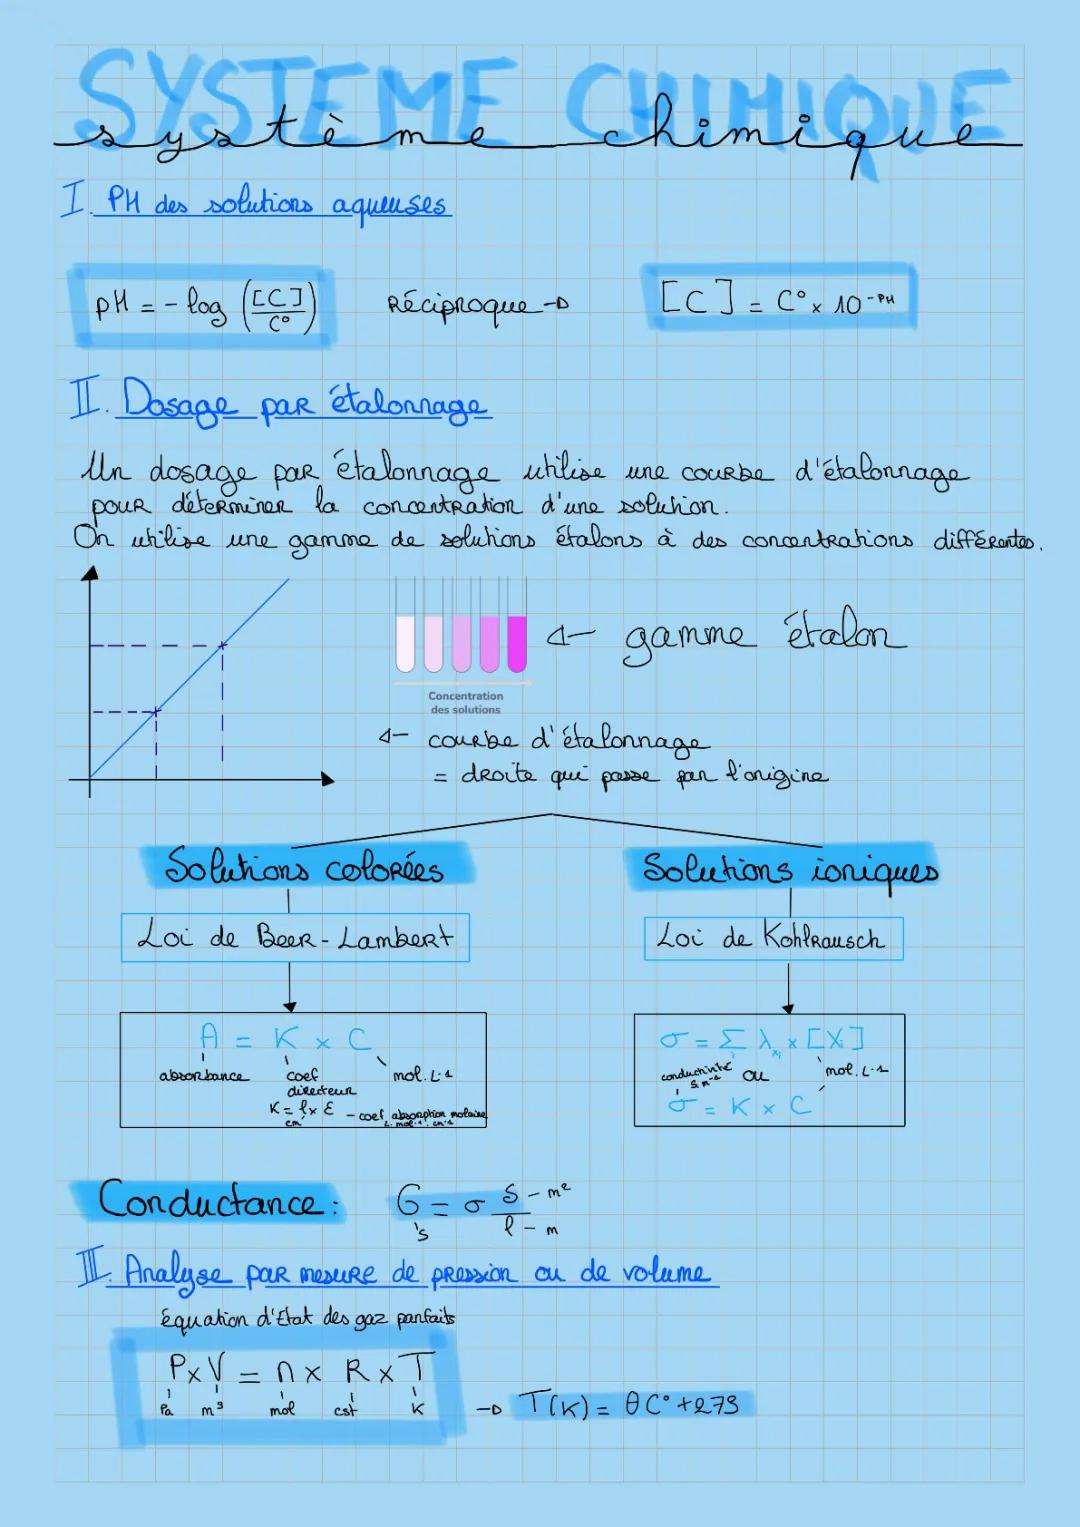 SYSTEME CHIMIQUE
système chimique
I. PH des solutions aqueuses
pH = - log ([C]/C°)
Réciproque →
[C] = C° × 10^-PH
II. Dosage par étalonnage
Un dosage par étalonnage utilise une courbe d'étalonnage
pour déterminer la concentration d'une solution.
On utilise une gamme de solutions étalons à des concentrations différentes.
← gamme étalon
Concentration
des solutions
← courbe d'étalonnage
= droite qui passe par l'origine
Solutions colorées
Solutions ioniques
Loi de Beer-Lambert
Loi de Kohlrausch
A = K × C
absorbance
coef
directeur
mol.L-1
K = l × ε
cm
- coef absorption molaire
L.mol-1.cm-1
σ = Σi λXi × [Xi]
conductivité
S m-1
ou
mol.L-1
σ = K × C
Conductance :
G = σ S/l
S
- m²
- m
III. Analyse par mesure de pression ou de volume
équation d'état des gaz parfaits
P × V = n × R × T
Pa m³ mol cst K
→ T(K) = θ C° + 273